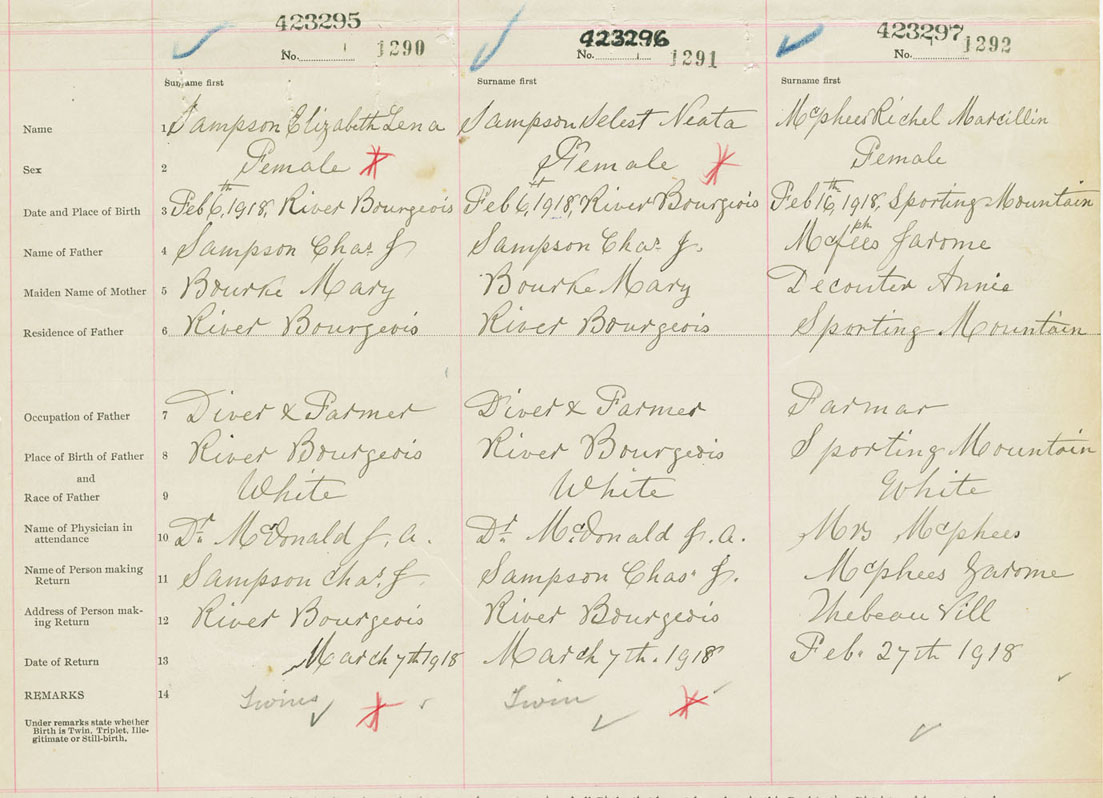 423295 423296 423297
No. 1290 No. 1291 No. 1292
Surname first Surname first Surname first
Name 1 Sampson Elizabeth Lena Sampson Selest Neata Mcphees Richel Marcillin
Sex 2 Female Female Female
Date and Place of Birth 3 Feb 6th, 1918, River Bourgeois Feb 6, 1918, River Bourgeois Feb 16th, 1918, Sporting Mountain
Name of Father 4 Sampson Chas J Sampson Chas J. Mcphees Jarome
Maiden Name of Mother 5 Bourke Mary Bourke Mary Decouter Annie
Residence of Father 6 River Bourgeois River Bourgeois Sporting Mountain
Occupation of Father 7 Diver & Farmer Diver & Farmer Farmar
Place of Birth of Father 8 River Bourgeois River Bourgeois Sporting Mountain
and
Race of Father 9 White White White
Name of Physician in
attendance 10 Dr. McDonald J. A. Dr. McDonald J. A. Mrs Mcphees
Name of Person making
Return 11 Sampson Chas. J. Sampson Chas. J. Mcphees Jarome
Address of Person mak-
ing Return 12 River Bourgeois River Bourgeois Thebeau Vill
Date of Return 13 March 7th 1918 March 7th. 1918 Feb. 27th 1918
REMARKS 14 Twins Twin
Under remarks state whether
Birth is Twin, Triplet, Ille-
gitimate or Still-birth.